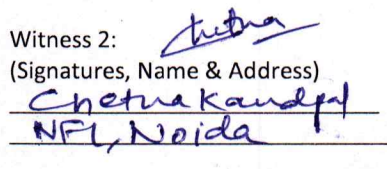 Witness 2:
Chetna
(Signatures, Name & Address)
Chetna Kandpal
NFL, Noida